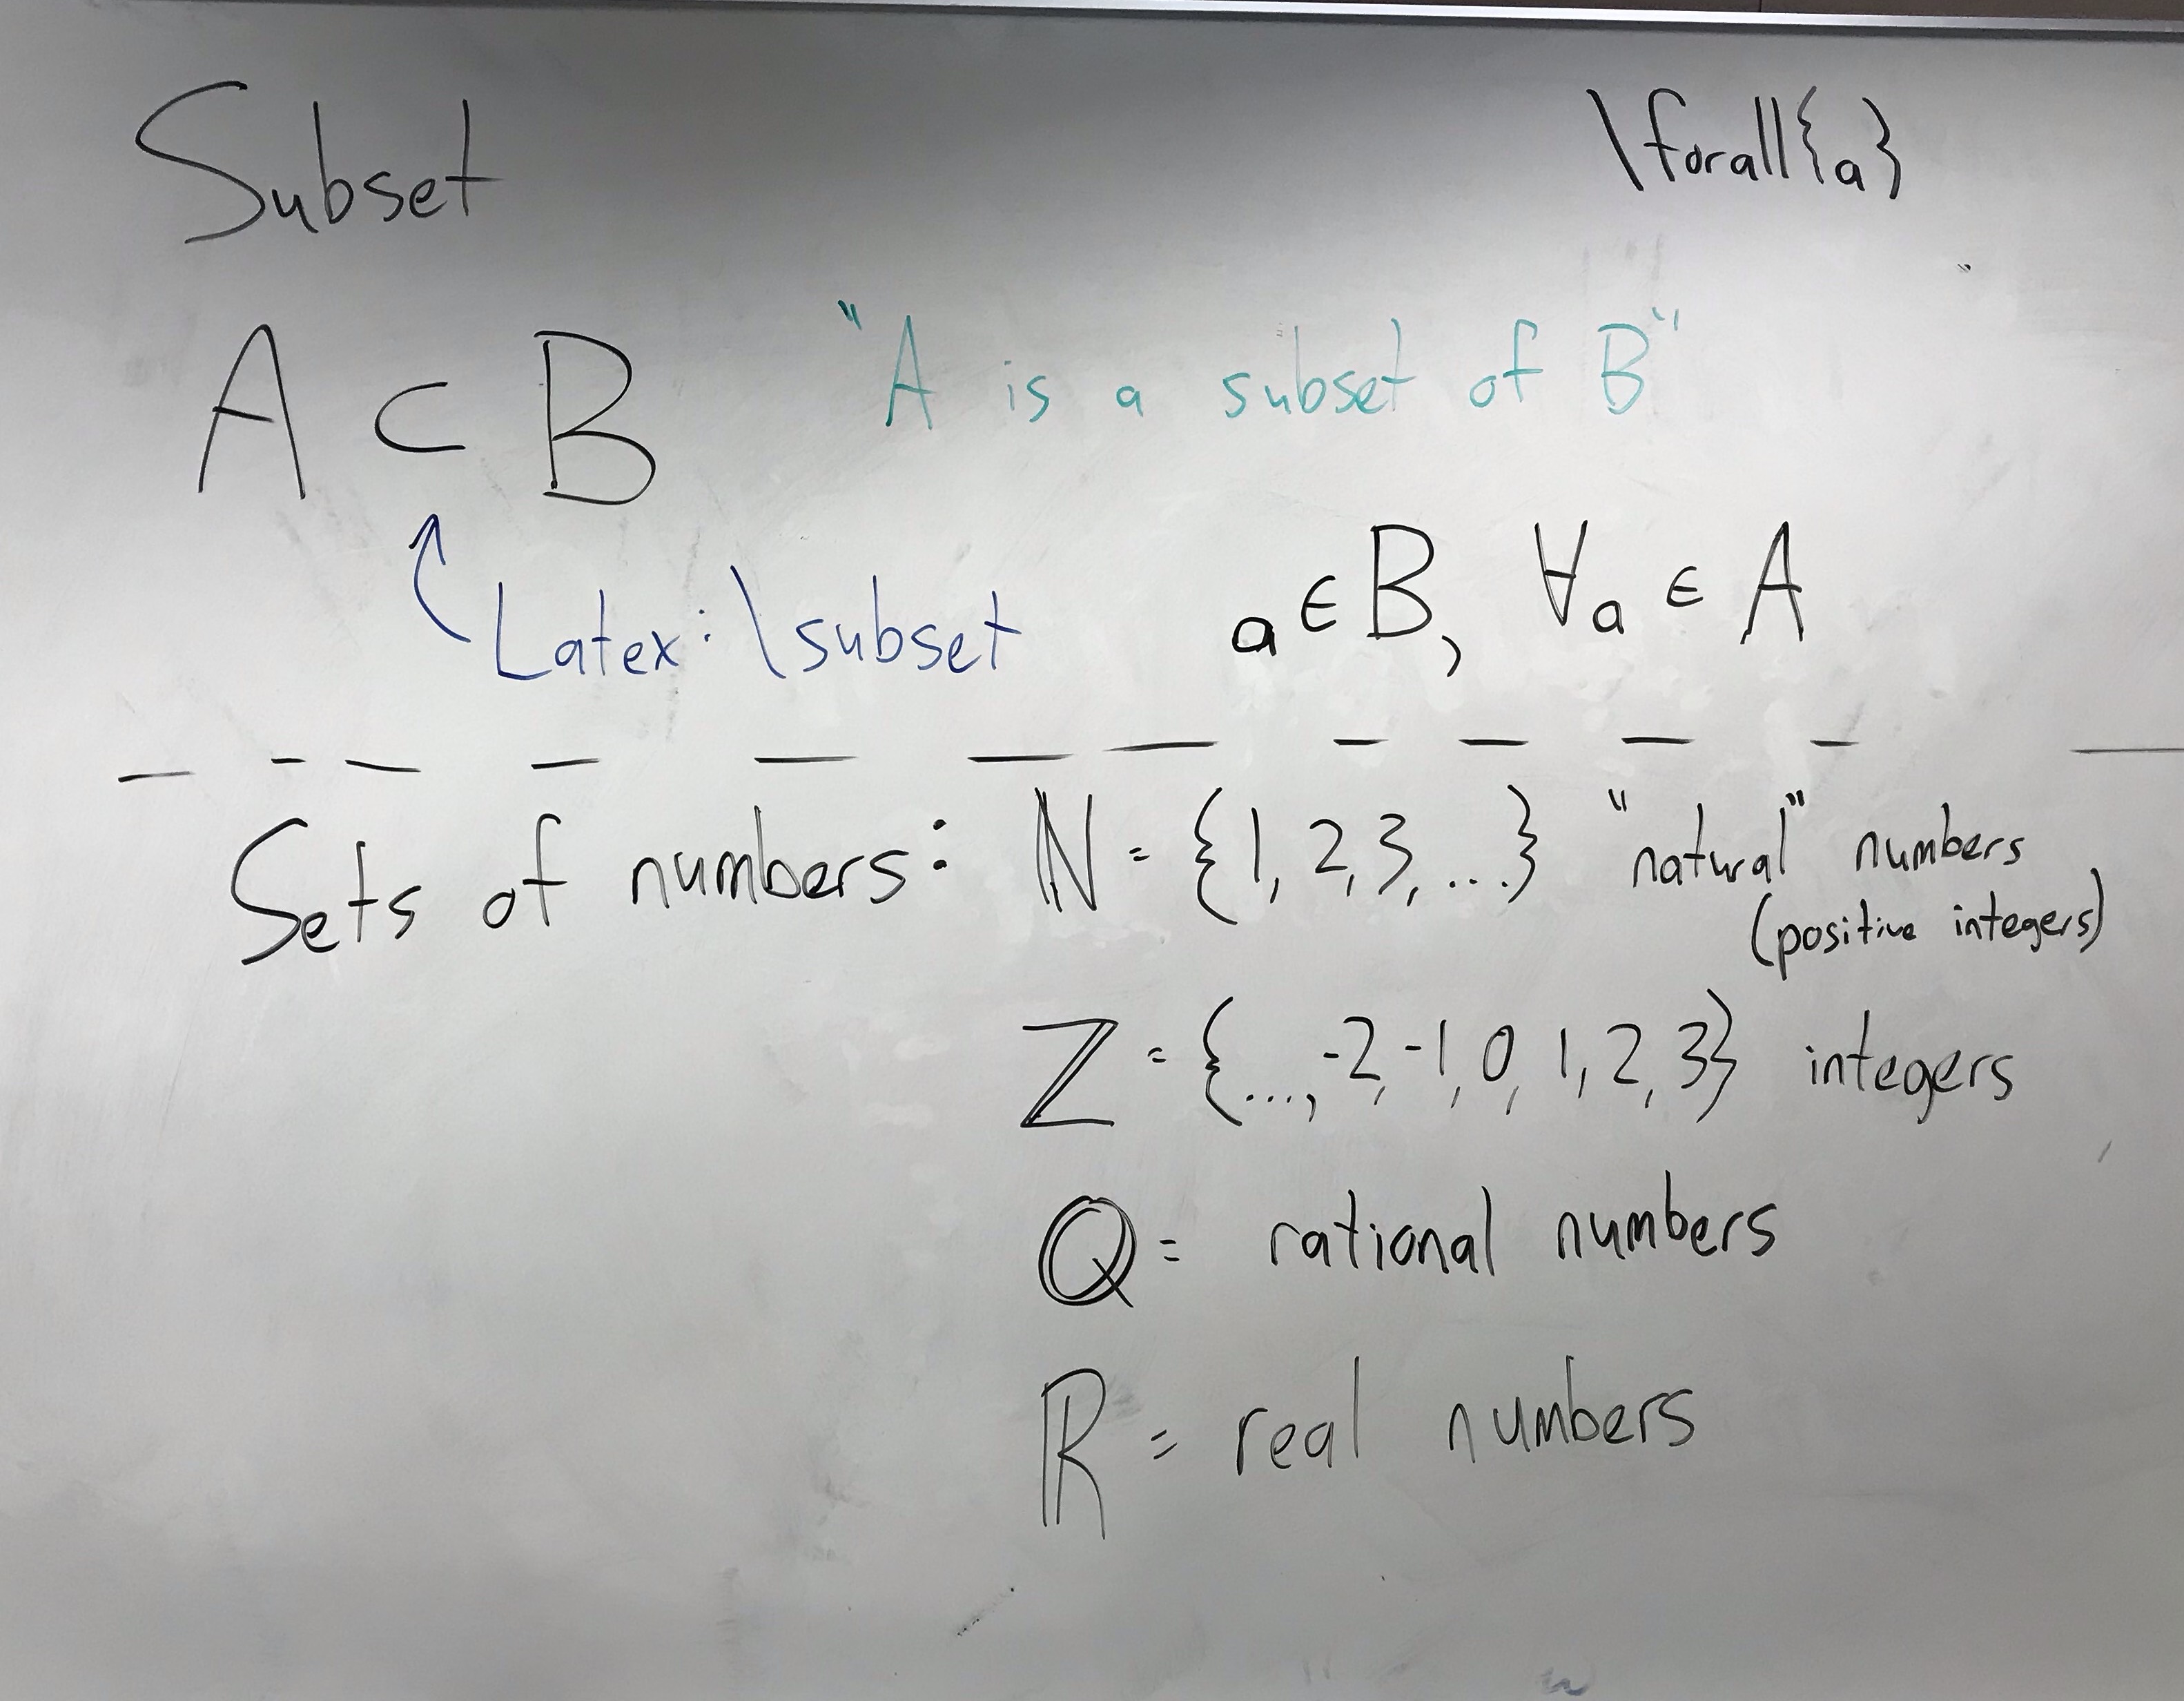 Subset
\forall{a}
A ⊂ B "A is a subset of B"
Latex: \subset
a ∈ B, ∀a ∈ A
Sets of numbers: ℕ = {1, 2, 3, ...} "natural" numbers
(positive integers)
ℤ = {..., -2, -1, 0, 1, 2, 3} integers
ℚ = rational numbers
ℝ = real numbers